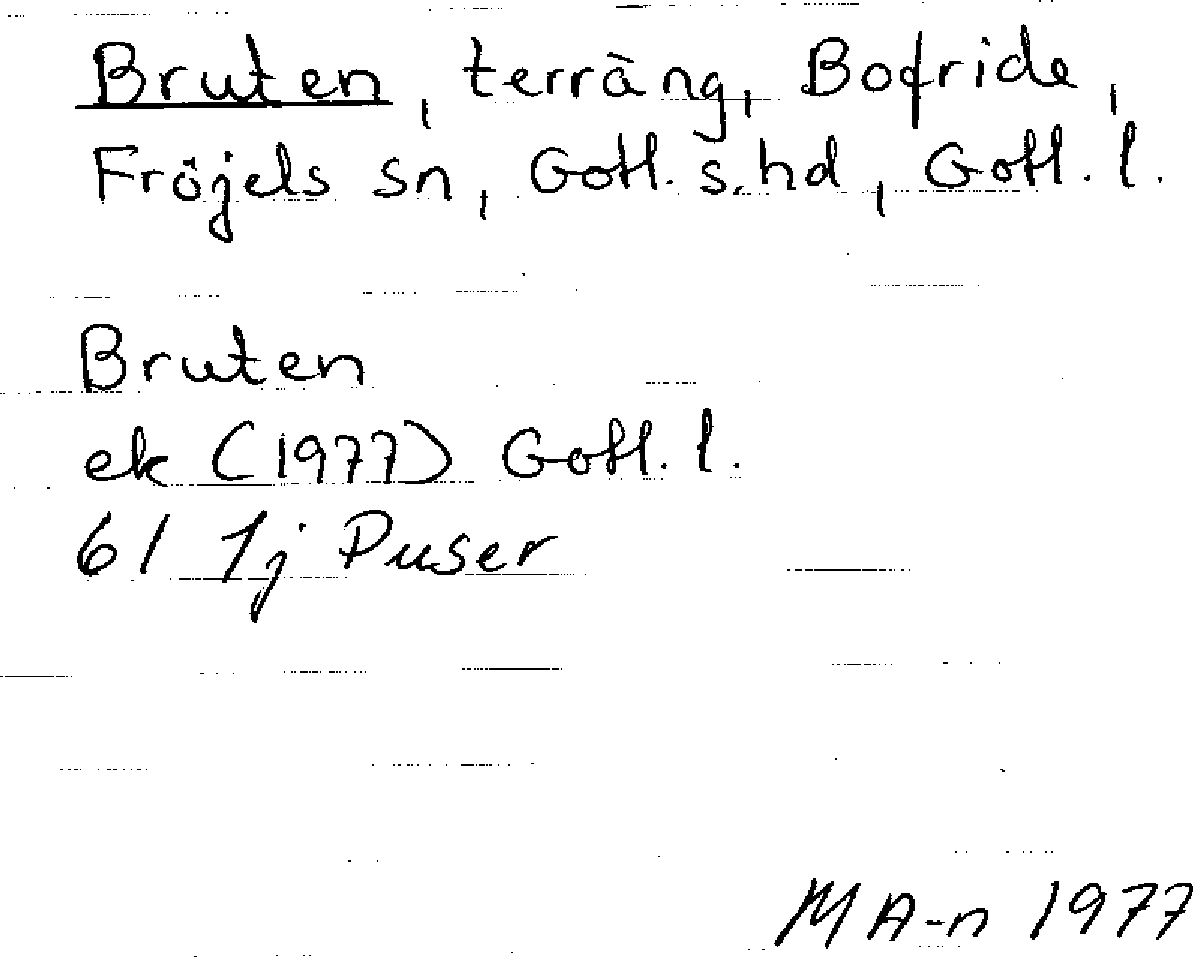 Bruten, terräng, Bofride,
Fröjels sn, Gotl. s. hd, Gotl. l.
Bruten
ek (1977) Gotl. l.
6I 1j Puser
MA-n 1977